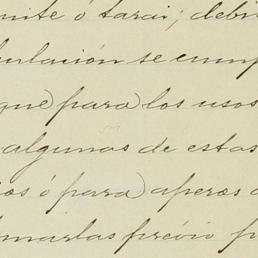 mite ó tarai; debi
bulación se cump
que para los usos
algunas de estas
as ó para) aperos
marlas prévio p